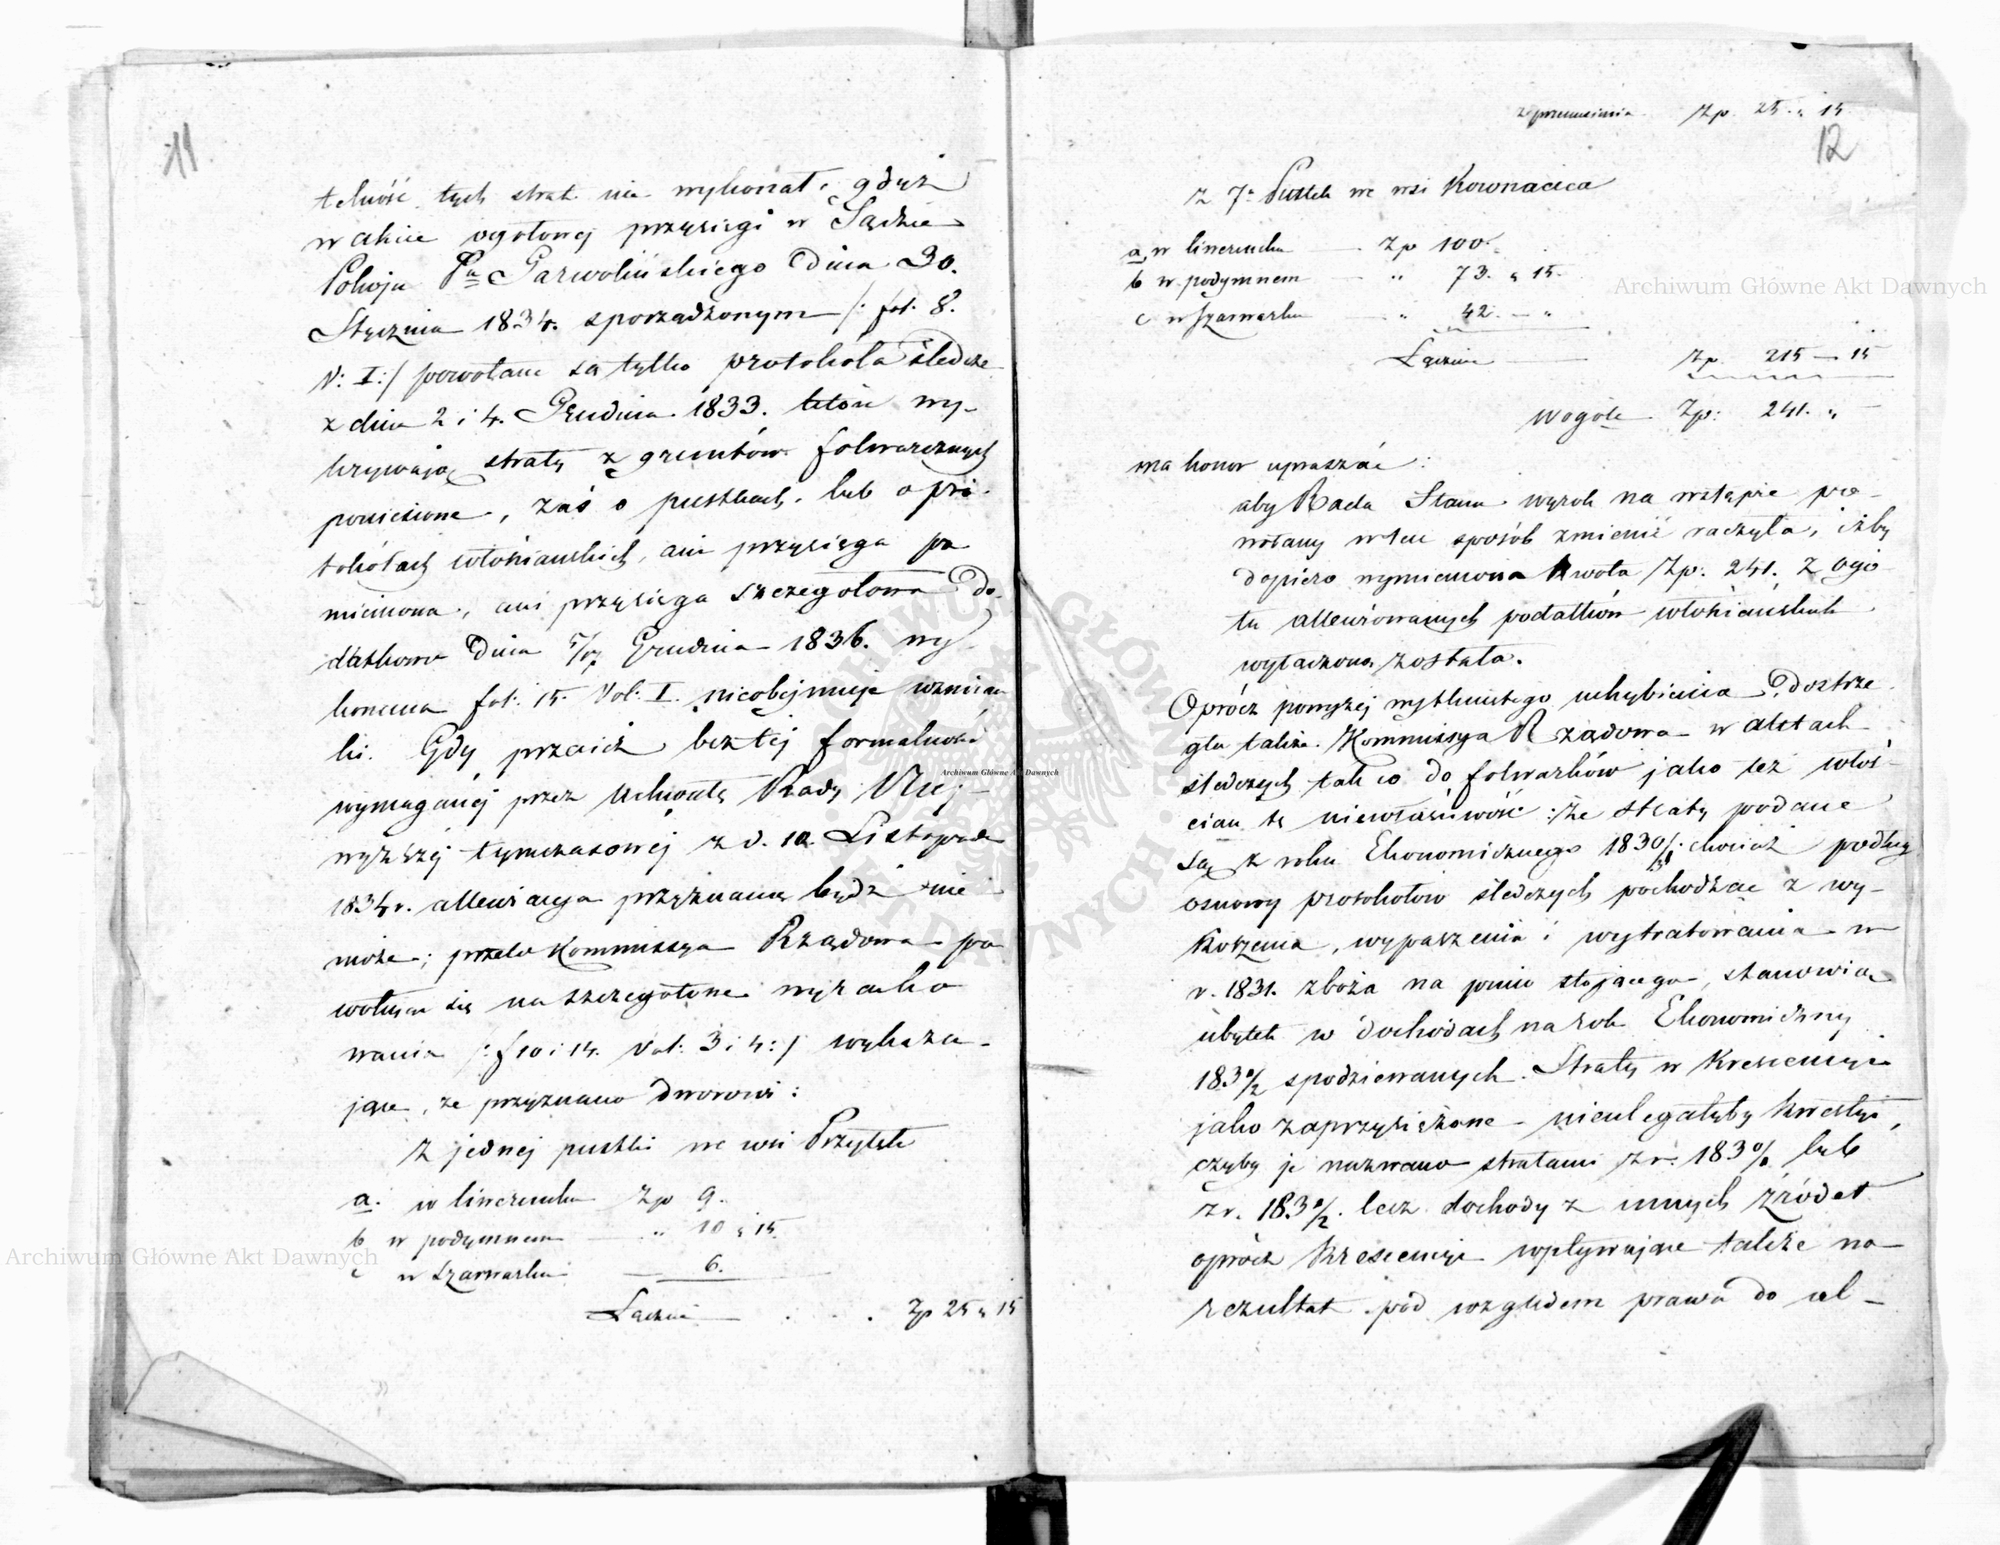 11
telność tych strat nie wykonał, gdyż
w akcie ogólowej przysięgi w Sądzie
Pokoju Ptu Garwolińskiego dnia 30.
Stycznia 1834. sporządzonym /: fol: 8.
V: I:/ powołane są tylko protokóła śledcze
z dnia 2 i 4. Grudnia 1833. które wy-
krywają straty z gruntów folwarcznych
poniesione, zaś o pustkach, lub o pro-
tokółach włościańskich, ani przysięga po
mieniona, ani przysięga szczegółowa do-
datkowo dnia 5/17 Grudnia 1836. wy-
konana fol: 15. Vol: I. nieobejmuje wzmian
ki. Gdy przecież bez tej formalności
wymaganéj przez Uchwałę Rady Naj-
wyższéj tymczasowéj z d. 10. Listopada
1834 r. allewiacya przyznaną bydź nie
może; przeto Kommissya Rządowa po
wołując się na szczegółowe wyracho
wania /: f 10 i 14. Vol: 3 i 4:/ wykazu-
jące, że przyznano dworowi:
Z jednej pustki we wsi Przyłęk
a. w liwerunku Zp 9.
b w podymnem — „ 10 „ 15.
c w szarwarku — 6.
Łącznie — . . . Zp 25 „ 15
z przeniesienia Zp. 25. „ 15
12
Z 7. Pustek we wsi Kownacica
a, w liwerunku — Zp 100.
b w podymnem — „ 73. „ 15.
c w szarwarku „ 42. — „
Łącznie — Zp. 215 — 15
Wogóle Zp: 241. „ —
ma honor upraszać:
aby Rada Stanu wyrok na wstępie po-
wołany w ten sposób zmienić raczyła, iżby
dopiero wymieniona kwota Zp: 241. z ogó-
łu allewiowanych podatków włościańskich
wyłączona została.
Oprócz powyżej wytkniętego uchybienia, dostrze
gła także Kommissya Rządowa w aktach
śledczych tak co do folwarków jako też włoś-
cian tę niewłaściwość: że straty podane
są z roku Ekonomicznego 1830/31. chociaż podług
osnowy protokołów śledczych pochodzące z wy-
koszenia, wypaszenia i wytratowania w
r. 1831. zboża na pniu stojącego, stanowią
ubytek w dochodach na rok Ekonomiczny
183½ spodziewanych. Straty w Krescencyi
jako zaprzysiężone nieulegałyby kwestyi,
czyby je nazwano stratami z r: 183%1 lub
z r. 183½. lecz dochody z innych źródeł
oprócz Krescencyi wpływające także na
rezultat pod względem prawa do ul-
Archiwum Główne Akt Dawnych
Archiwum Główne Akt Dawnych
Archiwum Główne Akt Dawnych
ARCHIWUM GŁÓWNE AKT DAWNYCH